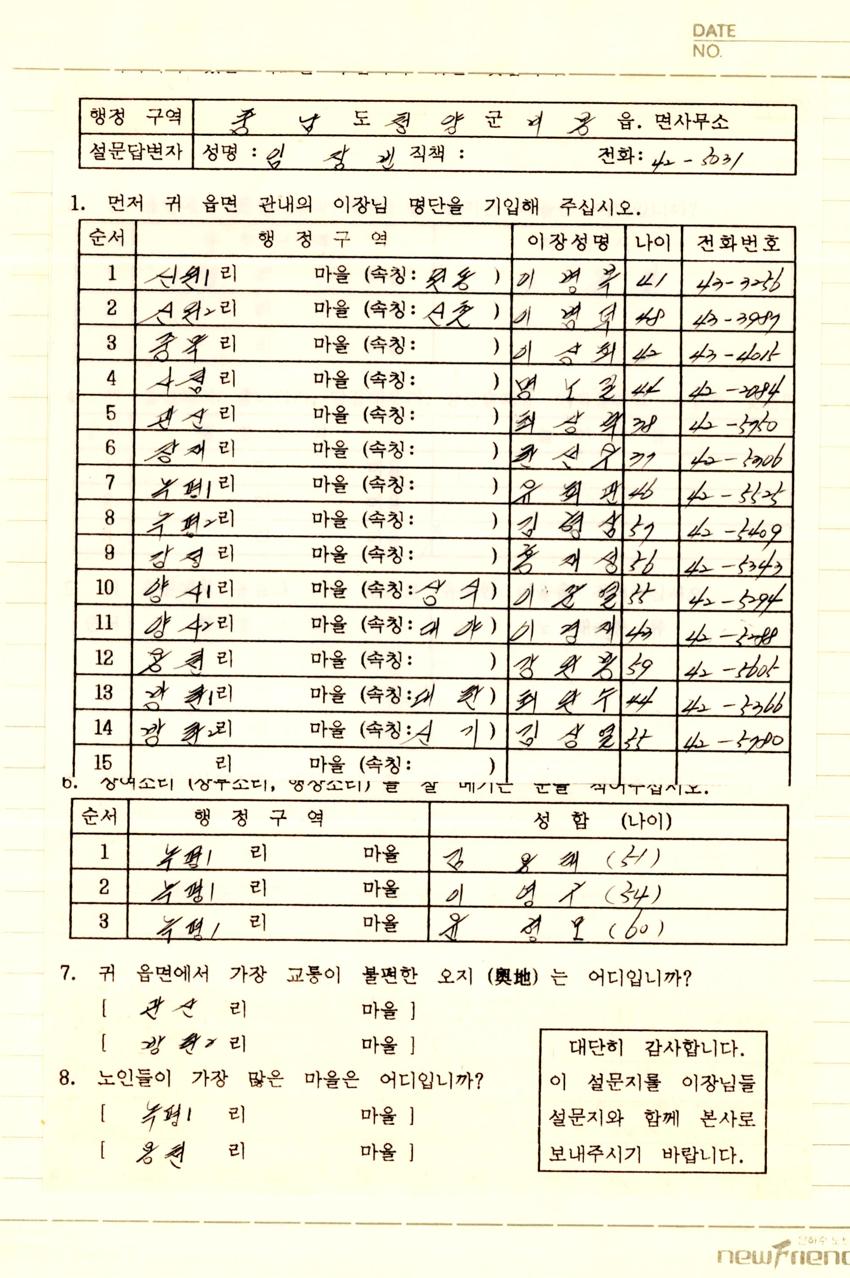 DATE
NO.
행정 구역 충 남 도 청 양 군 비 봉 읍. 면사무소
설문답변자 성명 : 임 상 직책 : 전화: 42-5031
1. 먼저 귀 읍면 관내의 이장님 명단을 기입해 주십시오.
순서 행 정 구 역 이장성명 나이 전화번호
1 신원1 리 마을 (속칭: 원동 ) 이 경 복 41 43-3256
2 신원2 리 마을 (속칭: 신촌 ) 이 병 덕 48 43-3987
3 중묵 리 마을 (속칭: ) 이 상 희 42 43-4015
4 사점 리 마을 (속칭: ) 명 노 길 44 42-2084
5 관산 리 마을 (속칭: ) 최 상 38 42-5750
6 장재 리 마을 (속칭: ) 한 선 우 37 42-5306
7 녹평1 리 마을 (속칭: ) 윤 희 관 46 42-5525
8 녹평2 리 마을 (속칭: ) 김 형 삼 57 42-5409
9 강정 리 마을 (속칭: ) 재 성 56 42-5343
10 양사1 리 마을 (속칭: 상 수 ) 이 열 55 42-5294
11 양사2 리 마을 (속칭: 대 야 ) 이 경 재 43 42-5288
12 용천 리 마을 (속칭: ) 강 완 59 42-5605
13 강천1 리 마을 (속칭: 대 한 ) 최 완 수 44 42-5366
14 강천2 리 마을 (속칭: 신 기 ) 김 상 열 55 42-5780
15 리 마을 (속칭: )
6. 상여소리 (상두소리, 행상소리) 를 잘 메기는 분을 적어주십시오.
순서 행 정 구 역 성 함 (나이)
1 녹평1 리 마을 김 용 태 (51)
2 녹평1 리 마을 이 병 우 (54)
3 녹평1 리 마을 윤 병 모 (60)
7. 귀 읍면에서 가장 교통이 불편한 오지 (奧地) 는 어디입니까?
[ 관산 리 마을 ]
[ 강천2 리 마을 ]
8. 노인들이 가장 많은 마을은 어디입니까?
[ 녹평1 리 마을 ]
[ 용천 리 마을 ]
대단히 감사합니다.
이 설문지를 이장님들
설문지와 함께 본사로
보내주시기 바랍니다.
newFriend